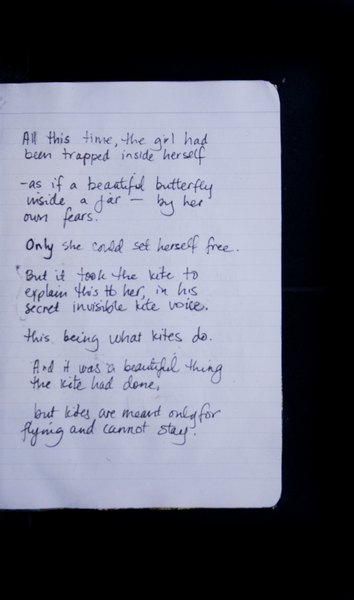 All this time, the girl had
been trapped inside herself
-as if a beautiful butterfly
inside a jar - by her
own fears.
Only she could set herself free.
But it took the kite to
explain this to her, in his
secret invisible kite voice.
this being what kites do.
And it was a beautiful thing
the kite had done,
but kites are meant only for
flying and cannot stay.